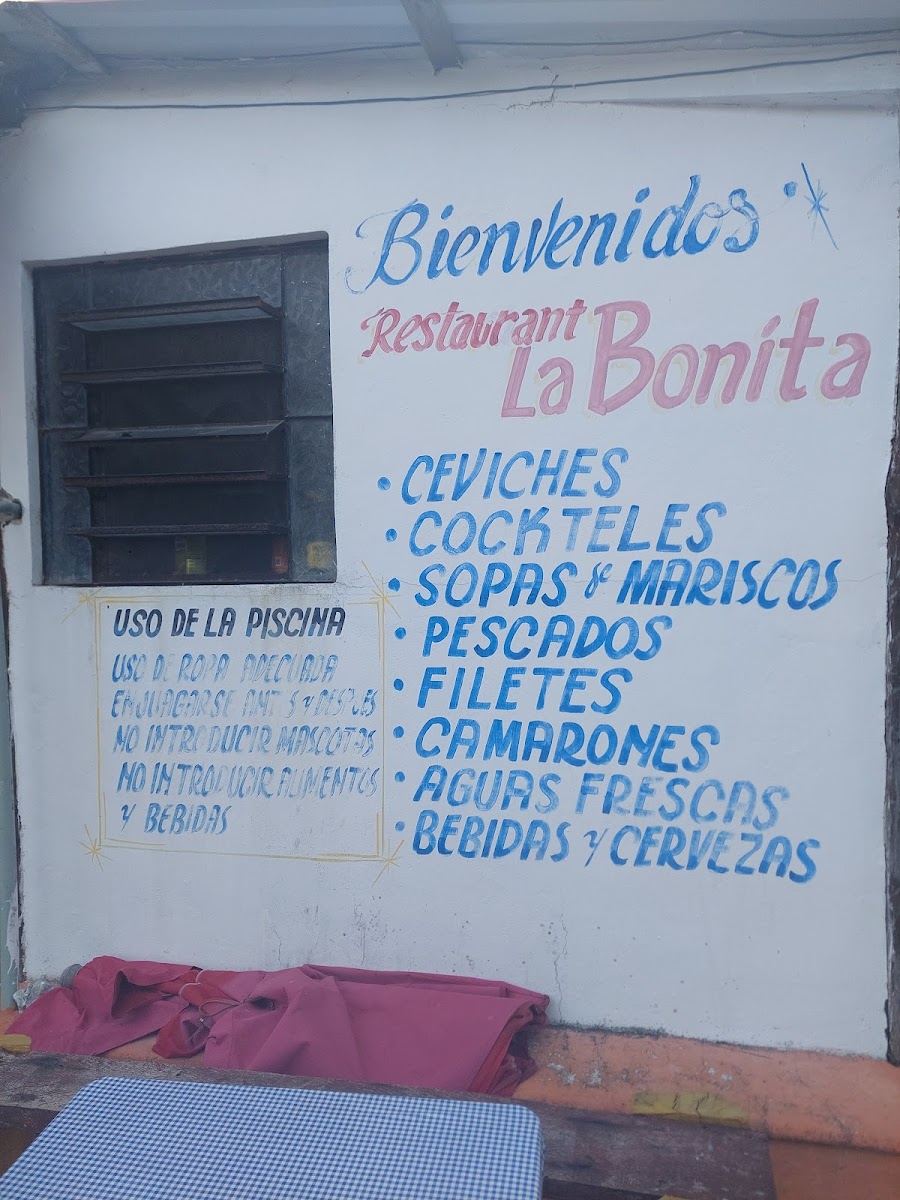 Bienvenidos
Restaurant
La Bonita
• CEVICHES
• COCKTELES
• SOPAS & MARISCOS
• PESCADOS
• FILETES
• CAMARONES
• AGUAS FRESCAS
• BEBIDAS Y CERVEZAS
USO DE LA PISCINA
USO DE ROPA ADECUADA
ENJUAGARSE ANTES Y DESPUES
NO INTRODUCIR MASCOTAS
NO INTRODUCIR ALIMENTOS
Y BEBIDAS